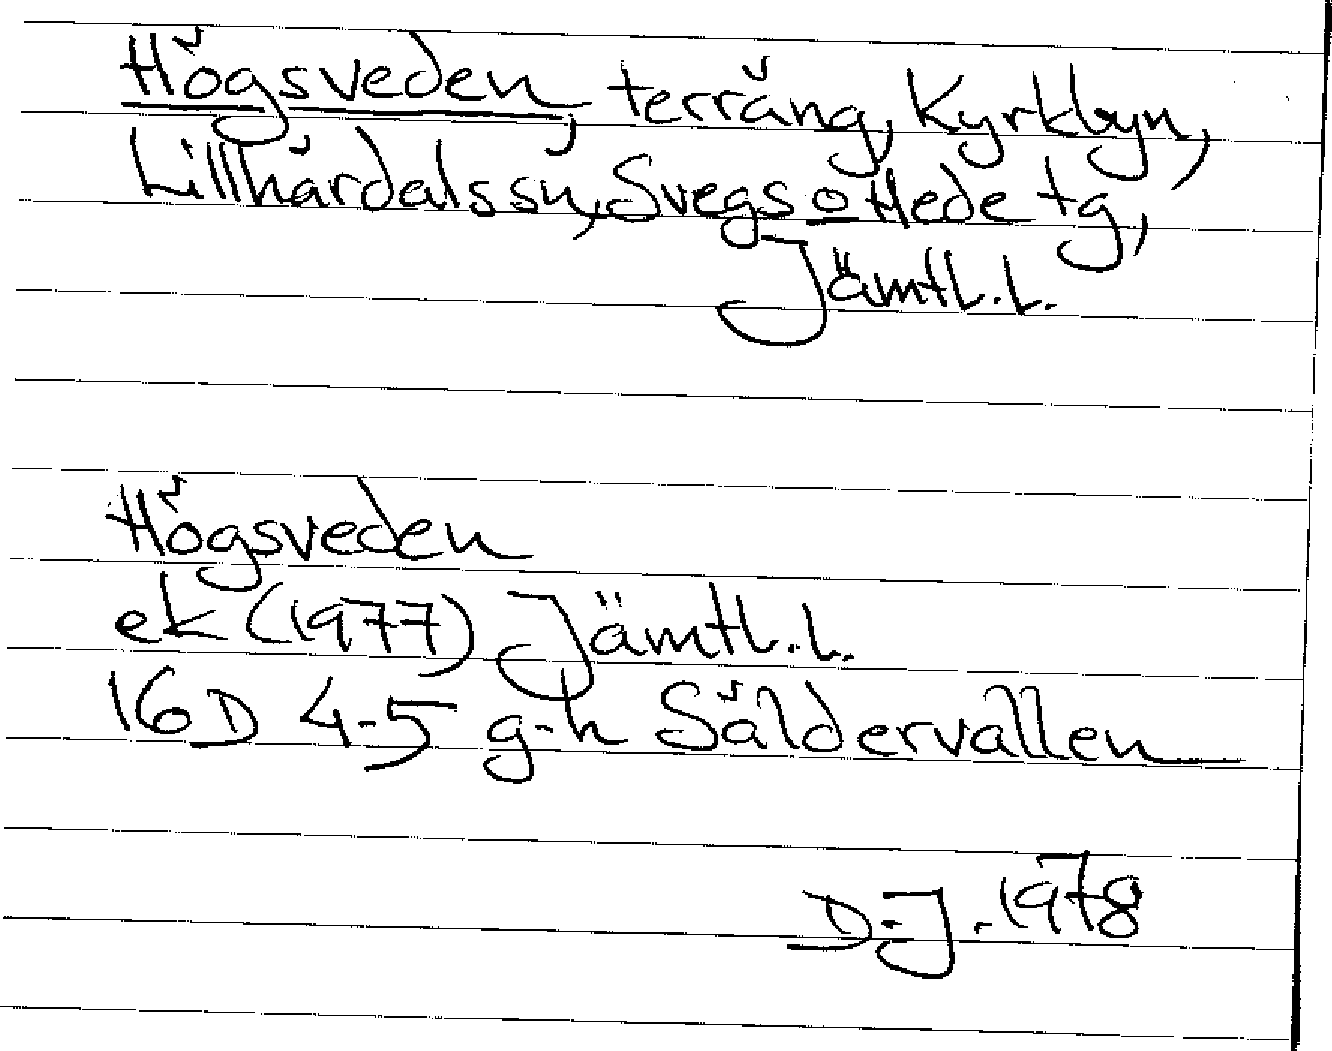 Högsveden, terräng, Kyrkbyn,
Lillhärdals sn, Svegs o Hede tg,
Jämtl. l.
Högsveden
ek (1977) Jämtl. l.
16 D 4-5 g-h Säldervallen
D-J. 1978